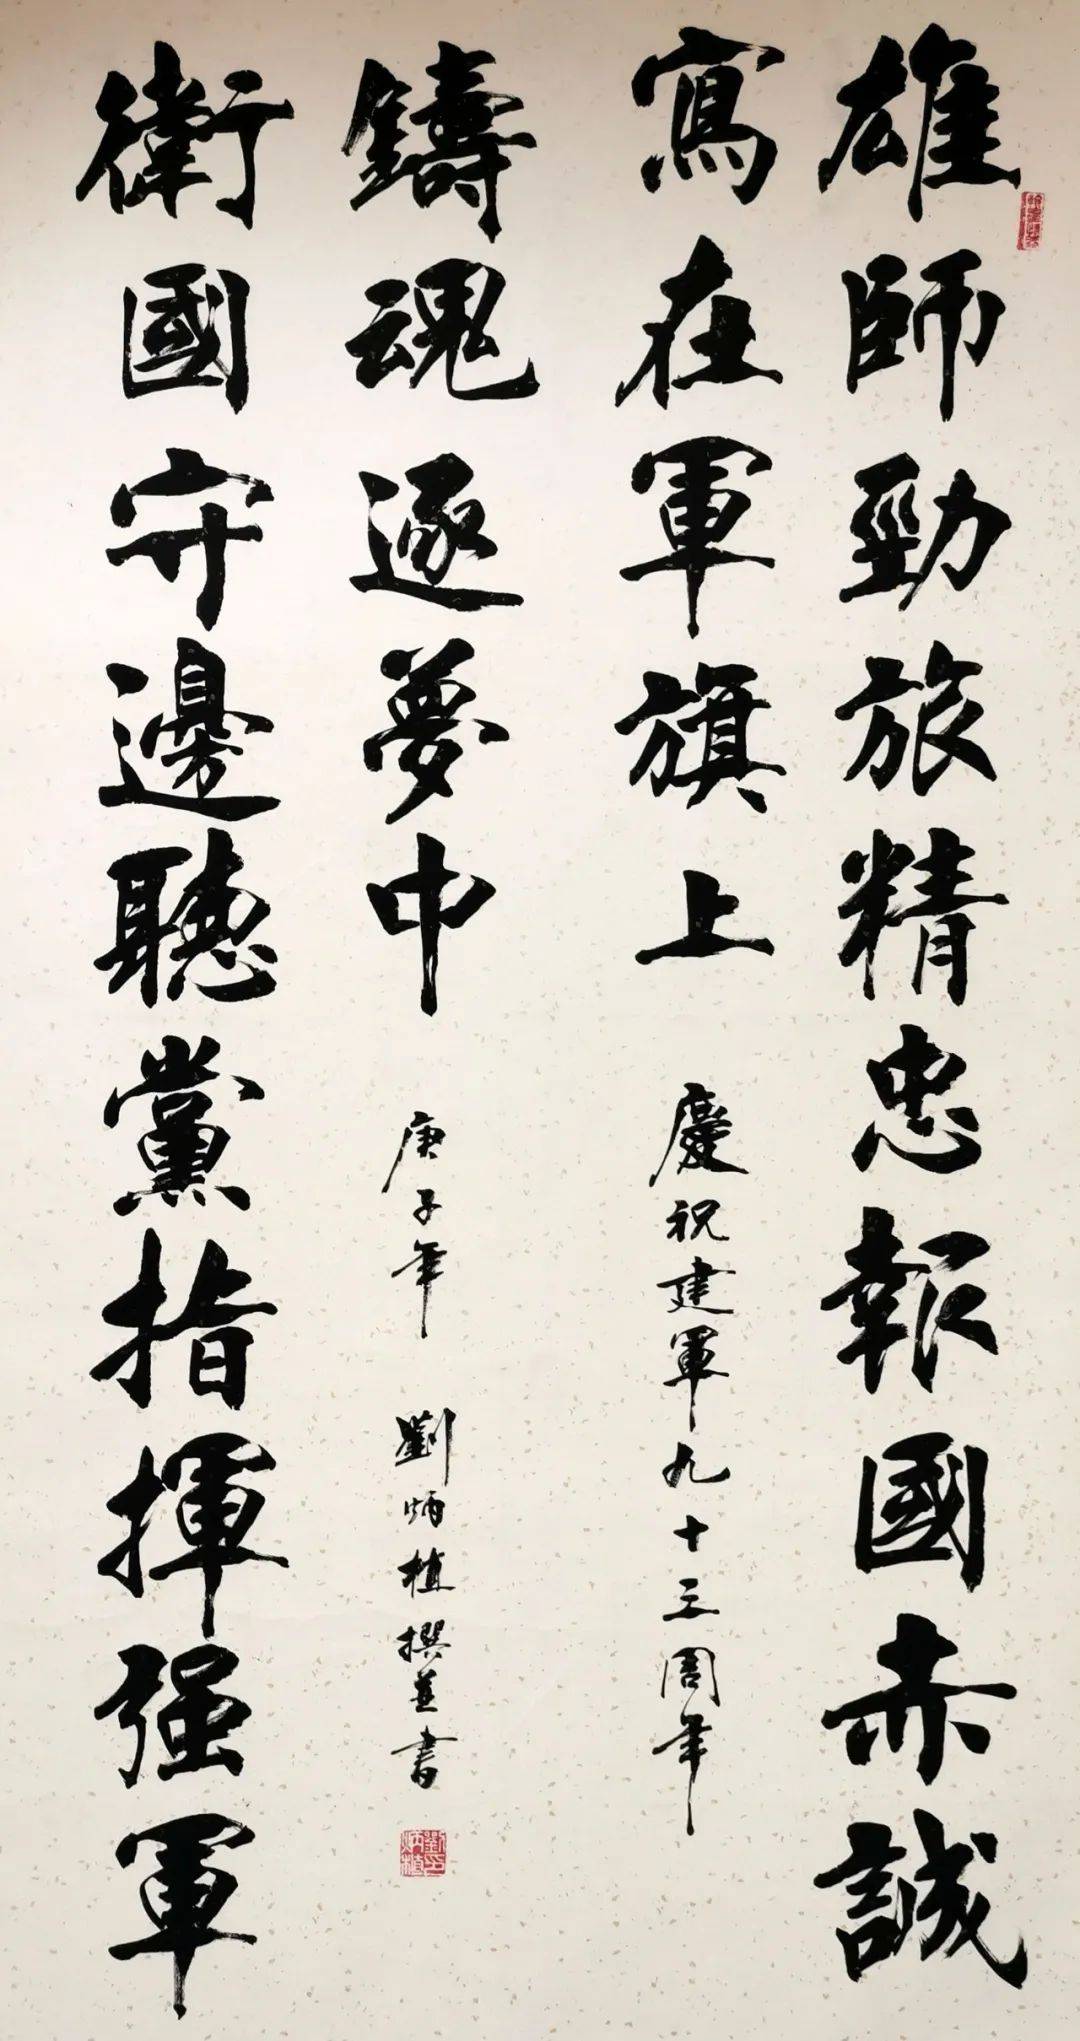 雄師勁旅精忠報國赤誠
寫在軍旗上
慶祝建軍九十三周年
衛國守邊聽黨指揮强軍
鑄魂逐夢中
庚子年 劉炳植撰並書
劉炳植印